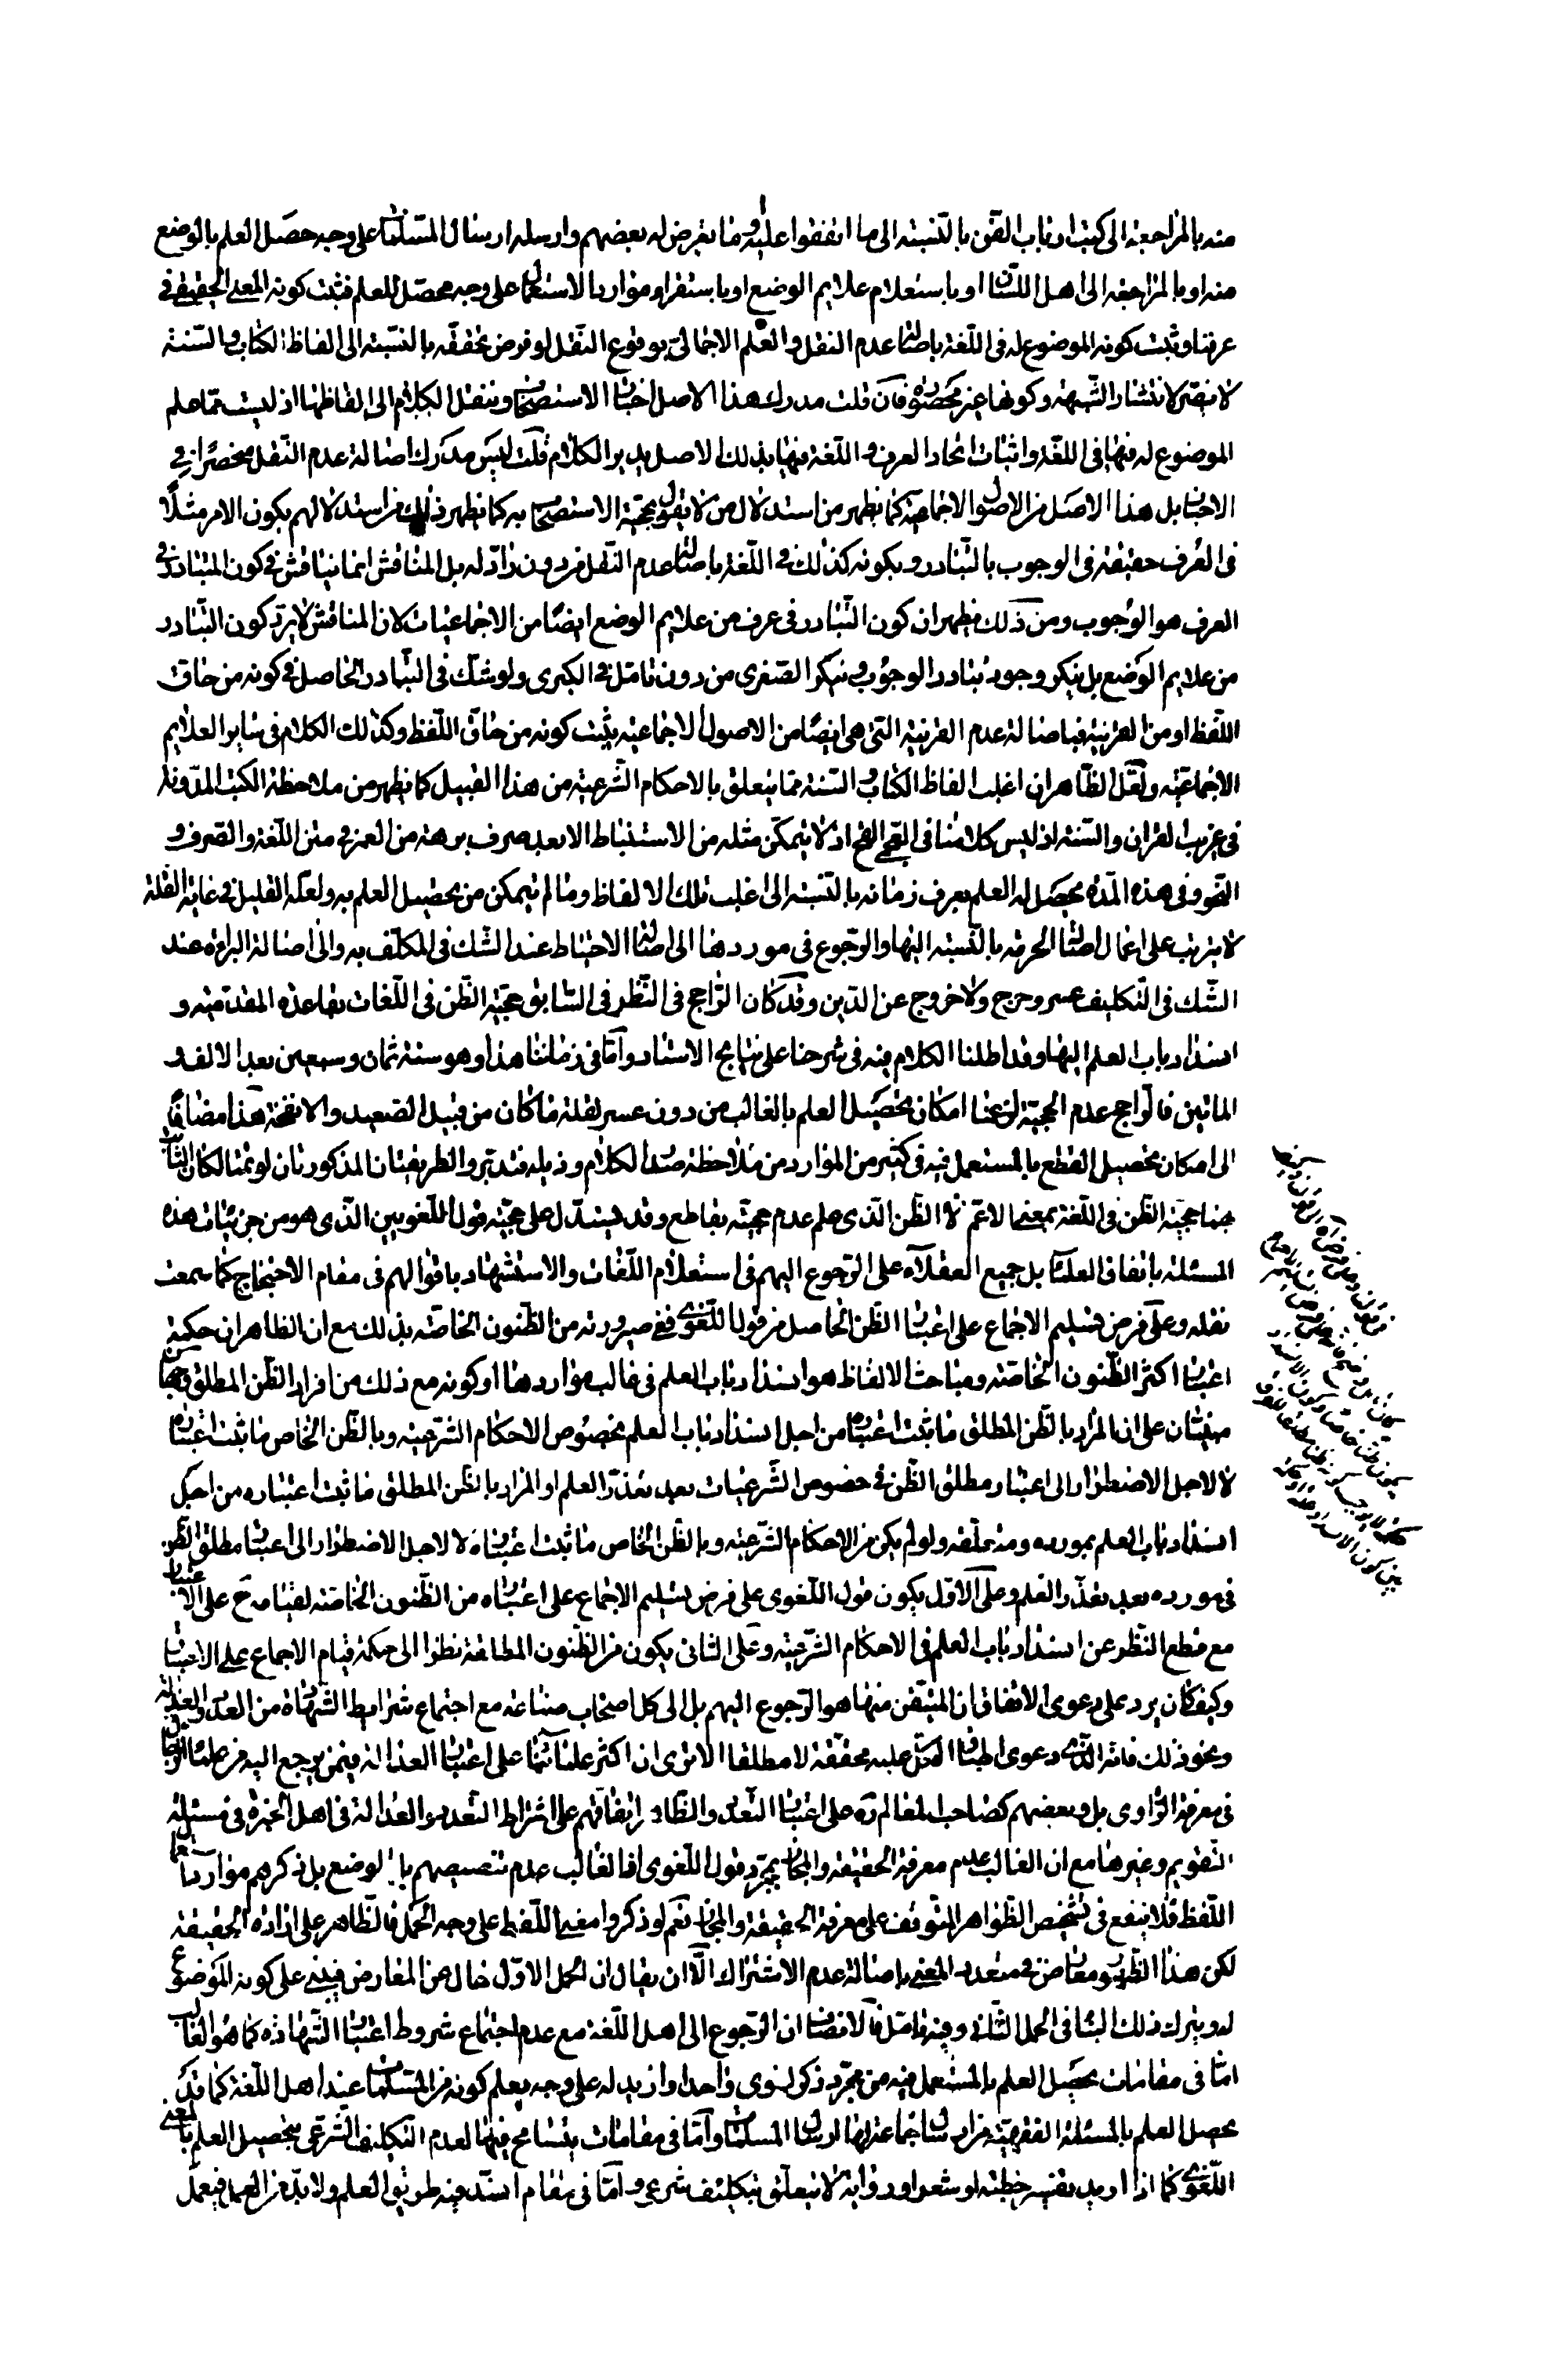 منه بالمراجعة الى كتب ارباب الفن بالنسبة الى ما اتفقوا عليه وما تعرض له بعضهم وارسله ارسال المسلمات على وجه حصل العلم بالوضع
منه او بالمراجعة الى اهل اللسان او باستعلام علايم الوضع او باستقراء موارد الاستعمال على وجه محصل للعلم فثبت كونه المعنى الحقيقى فى
عرفنا وثبت كونه الموضوع له فى اللغة باصالة عدم النقل والعلم الاجمالى بوقوع النقل لو فرض تحققه بالنسبة الى الفاظ الكتاب والسنة
لا يضر لانتشار الشبهة وكونها غير محصورة فان قلت مدرك هذا الاصل اخبار الاستصحاب وننقل الكلام الى الفاظها اذ ليست مما علم
الموضوع له فيها فى اللغة واثبات اتحاد العرف واللغة فيها بذلك الاصل يدير الكلام قلت ليس مدرك اصالة عدم النقل منحصرا فى
الاخبار بل هذا الاصل من الاصول الاجماعية كما يظهر من استدلال من لا يقول بحجية الاستصحاب به كما يظهر ذلك من استدلالهم بكون الامر مثلا
فى العرف حقيقة فى الوجوب بالتبادر وبكونه كذلك فى اللغة باصالة عدم النقل من دون راد له بل المناقش انما يناقش فى كون المتبادر فى
العرف هو الوجوب ومن ذلك يظهر ان كون التبادر فى عرف من علايم الوضع ايضا من الاجماعيات لان المناقش لا يرد كون التبادر
من علايم الوضع بل ينكر وجود تبادر الوجوب فينكر الصغرى من دون تامل فى الكبرى ولو شك فى التبادر الحاصل فى كونه من حاق
اللفظ او من القرينة فباصالة عدم القرينة التى هى ايضا من الاصول الاجماعية يثبت كونه من حاق اللفظ وكذلك الكلام فى ساير العلايم
الاجماعية ولعل الظاهر ان اغلب الفاظ الكتاب والسنة مما يتعلق بالاحكام الشرعية من هذا القبيل كما يظهر من ملاحظة الكتب المدونة
فى غريب القران والسنة اذ ليس كلامنا فى العجمى القح اذ لا يتمكن مثله من الاستنباط الا بعد صرف برهة من العمر فى متن اللغة والصرف و
النحو وفى هذه المدة يحصل له العلم بعرف زمانه بالنسبة الى اغلب تلك الالفاظ وما لم يتمكن من تحصيل العلم به ولعله القليل فى غاية القلة
لا يترتب على اعمال اصالة الحرمة بالنسبة اليها والرجوع فى موردها الى اصالة الاحتياط عند الشك فى المكلف به والى اصالة البراءة عند
الشك فى التكليف عسر وحرج ولا خروج عن الدين وقد كان الراجح فى النظر فى السابق حجية الظن فى اللغات بقاعدة المقدمية و
انسداد باب العلم اليها وقد اطلنا الكلام فيه فى شرحنا على نتايج الاستاد واما فى زماننا هذا وهو سنة ثمان وسبعين بعد الالف و
الماتين فالراجح عدم الحجية لزعمنا امكان تحصيل العلم بالغالب من دون عسر لقلة ما كان من قبيل الصعيد والانفحة هذا مضافا
الى امكان تحصيل القطع بالمستعمل فيه فى كثير من الموارد من ملاحظة صدر الكلام وذيله فتدبر والطريقتان المذكورتان لو تمتا لكان الثابت
بهما حجية الظن فى اللغة بمعنى الاعم الا الظن الذى علم عدم حجيته بقاطع وقد يستدل على حجية قول اللغويين الذى هو من جزئيات هذه
المسئلة باتفاق العلماء بل جميع العقلاء على الرجوع اليهم فى استعلام اللغات والاستشهاد باقوالهم فى مقام الاحتجاج كما سمعت
نقله وعلى فرض تسليم الاجماع على اعتبار الظن الحاصل من قول اللغوى ففى صيرورته من الظنون الخاصة بذلك مع ان الظاهر ان حكمة
اعتبار اكثر الظنون الخاصة ومباحث الالفاظ هو انسداد باب العلم فى غالب مواردها او كونه مع ذلك من افراد الظن المطلق وجهان
مبنيتان على ان المراد بالظن المطلق ما ثبت اعتباره من اجل انسداد باب العلم بخصوص الاحكام الشرعية وبالظن الخاص ما ثبت اعتباره
لا لاجل الاضطرار الى اعتبار مطلق الظن فى خصوص الشرعيات بعد تعذر العلم او المراد بالظن المطلق ما ثبت اعتباره من اجل
انسداد باب العلم بمورده ومتعلقه ولو لم يكن من الاحكام الشرعية وبالظن الخاص ما ثبت اعتباره لا لاجل الاضطرار الى اعتبار مطلق الظن
فى مورده بعد تعذر العلم وعلى الاول يكون قول اللغوى على فرض تسليم الاجماع على اعتباره من الظنون الخاصة لقيامه ح على الاعتبار
مع قطع النظر عن انسداد باب العلم فى الاحكام الشرعية وعلى الثانى يكون من الظنون المطلقة نظرا الى حكمة قيام الاجماع على الاعتبار
وكيف كان يرد على دعوى الاتفاق ان المتيقن منها هو الرجوع اليهم بل الى كل اصحاب صناعة مع اجتماع شرايط الشهادة من العدد والعدالة
ونحو ذلك فانه الذى دعوى اطباق الكل عليه محققة لا مطلقا الا ترى ان اكثر علمائنا على اعتبار العدالة فيمن يرجع اليه من علماء الرجال
فى معرفة الراوى بل وبعضهم كصاحب المعالم ره على اعتبار التعدد والظاهر اتفاقهم على اشتراط التعدد والعدالة فى اهل الخبرة فى مسئلة
التقويم وغيرها مع ان الغالب عدم معرفة الحقيقة والمجاز بمجرد قول اللغوى اذ الغالب عدم تنصيصهم بالوضع بل ذكرهم موارد استعمال
اللفظ فلا ينفع فى تشخيص الظواهر المتوقف على معرفة الحقيقة والمجاز نعم لو ذكروا معنى اللفظ على وجه الحمل فالظاهر على ارادة الحقيقة
لكن هذا الظهور معارض فى متعدد المعنى باصالة عدم الاشتراك الا ان يقال ان الحمل الاول خال عن المعارض فيبنى على كونه الموضوع
له ويترك ذلك البناء فى الحمل الثانى وفيه تامل فالانصاف ان الرجوع الى اهل اللغة مع عدم اجتماع شروط اعتبار الشهادة كما هو الغالب
اما فى مقامات يحصل العلم بالمستعمل فيه من مجرد ذكر لغوى واحد او ازيد له على وجه يعلم كونه من المسلمات عند اهل اللغة كما قد
يحصل العلم بالمسئلة الفقهية من ارسال جماعة لها ارسال المسلمات واما فى مقامات يتسامح فيها لعدم التكليف الشرعى بتحصيل العلم بالمعنى
اللغوى كما اذا اريد تفسير خطبة او شعر او رواية لا يتعلق بتكليف شرعى واما فى مقام انسد فيه طريق العلم ولا بد من العمل فيعمل